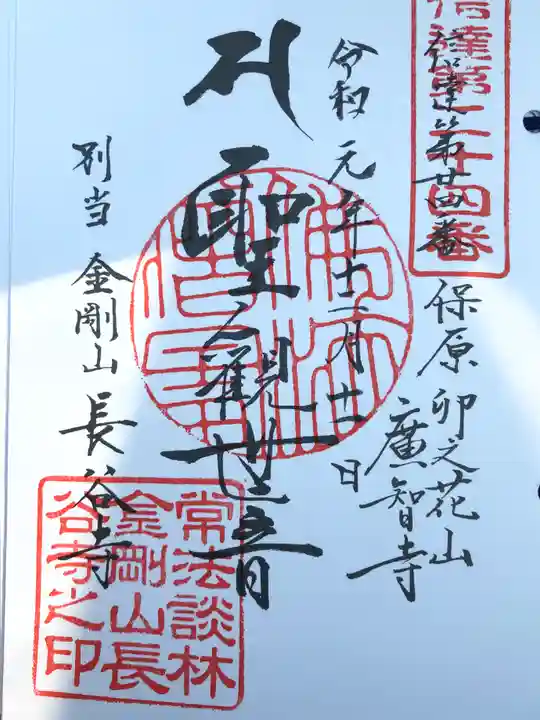 信達第二十四番
信達第廿四番
保原 卯之花山
廣智寺
令和元年十二月十一日
聖観世音
別当 金剛山 長谷寺
常法談林
金剛山長
谷寺之印